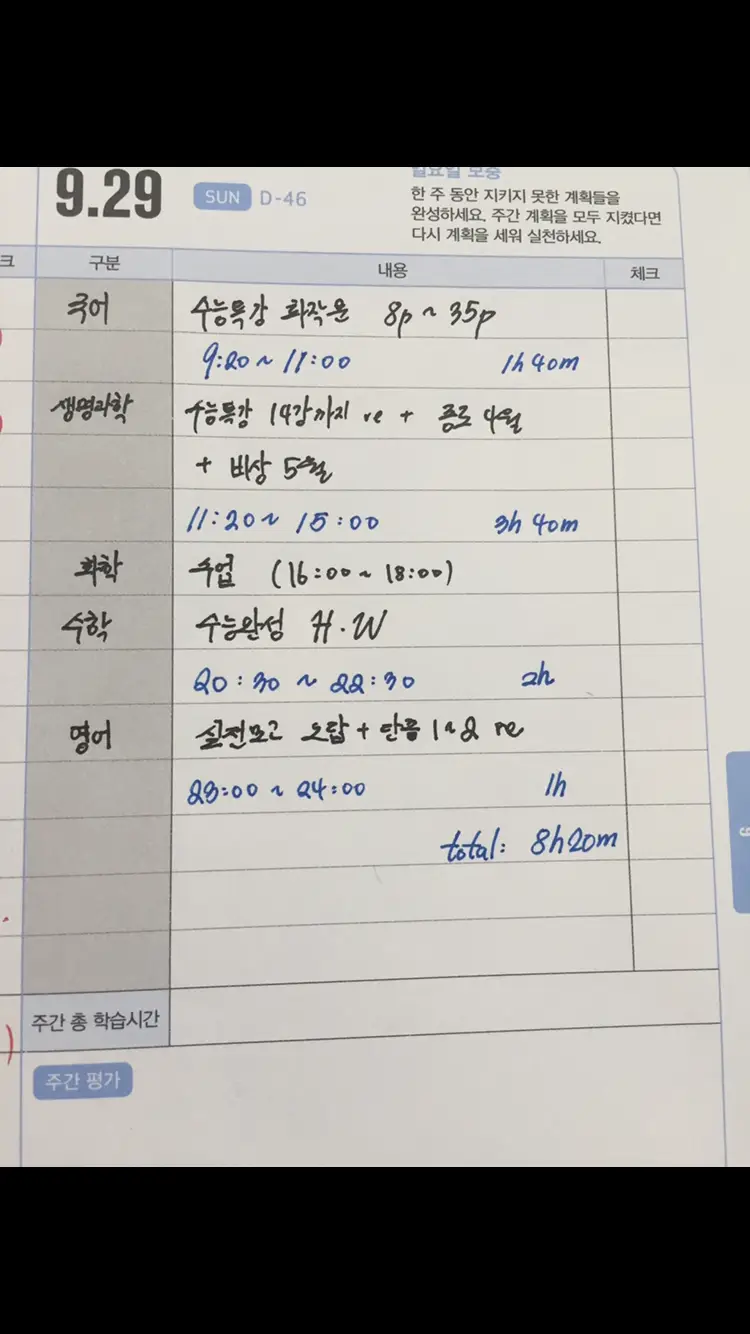 9.29 SUN D-46
일요일 보충
한 주 동안 지키지 못한 계획들을
완성하세요. 주간 계획을 모두 지켰다면
다시 계획을 세워 실천하세요.
크 구분 내용 체크
국어 수능특강 화작문 8p ~ 35p
9:20 ~ 11:00 1h 40m
생명과학 수능특강 14강까지 re + 종로 4월
+ 비상 5월
11:20 ~ 15:00 3h 40m
화학 수업 (16:00 ~ 18:00)
수학 수능완성 H.W
20:30 ~ 22:30 2h
영어 실전모고 오답 + 단콤 1~2 re
23:00 ~ 24:00 1h
total: 8h20m
주간 총 학습시간
주간 평가